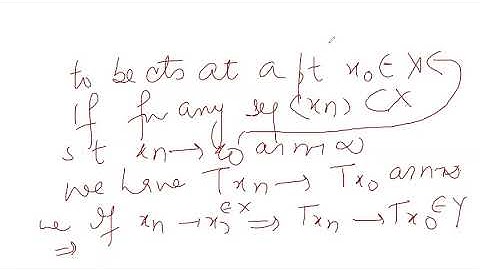 to be cts at a pt x₀ ∈ X
If for any seq (xn) ⊂ X
s t xn → x₀ as n→∞
we have Txn → Tx₀ as n→∞
ie If xn → x₀ ∈ X ⇒ Txn → Tx₀ ∈ Y
⇒